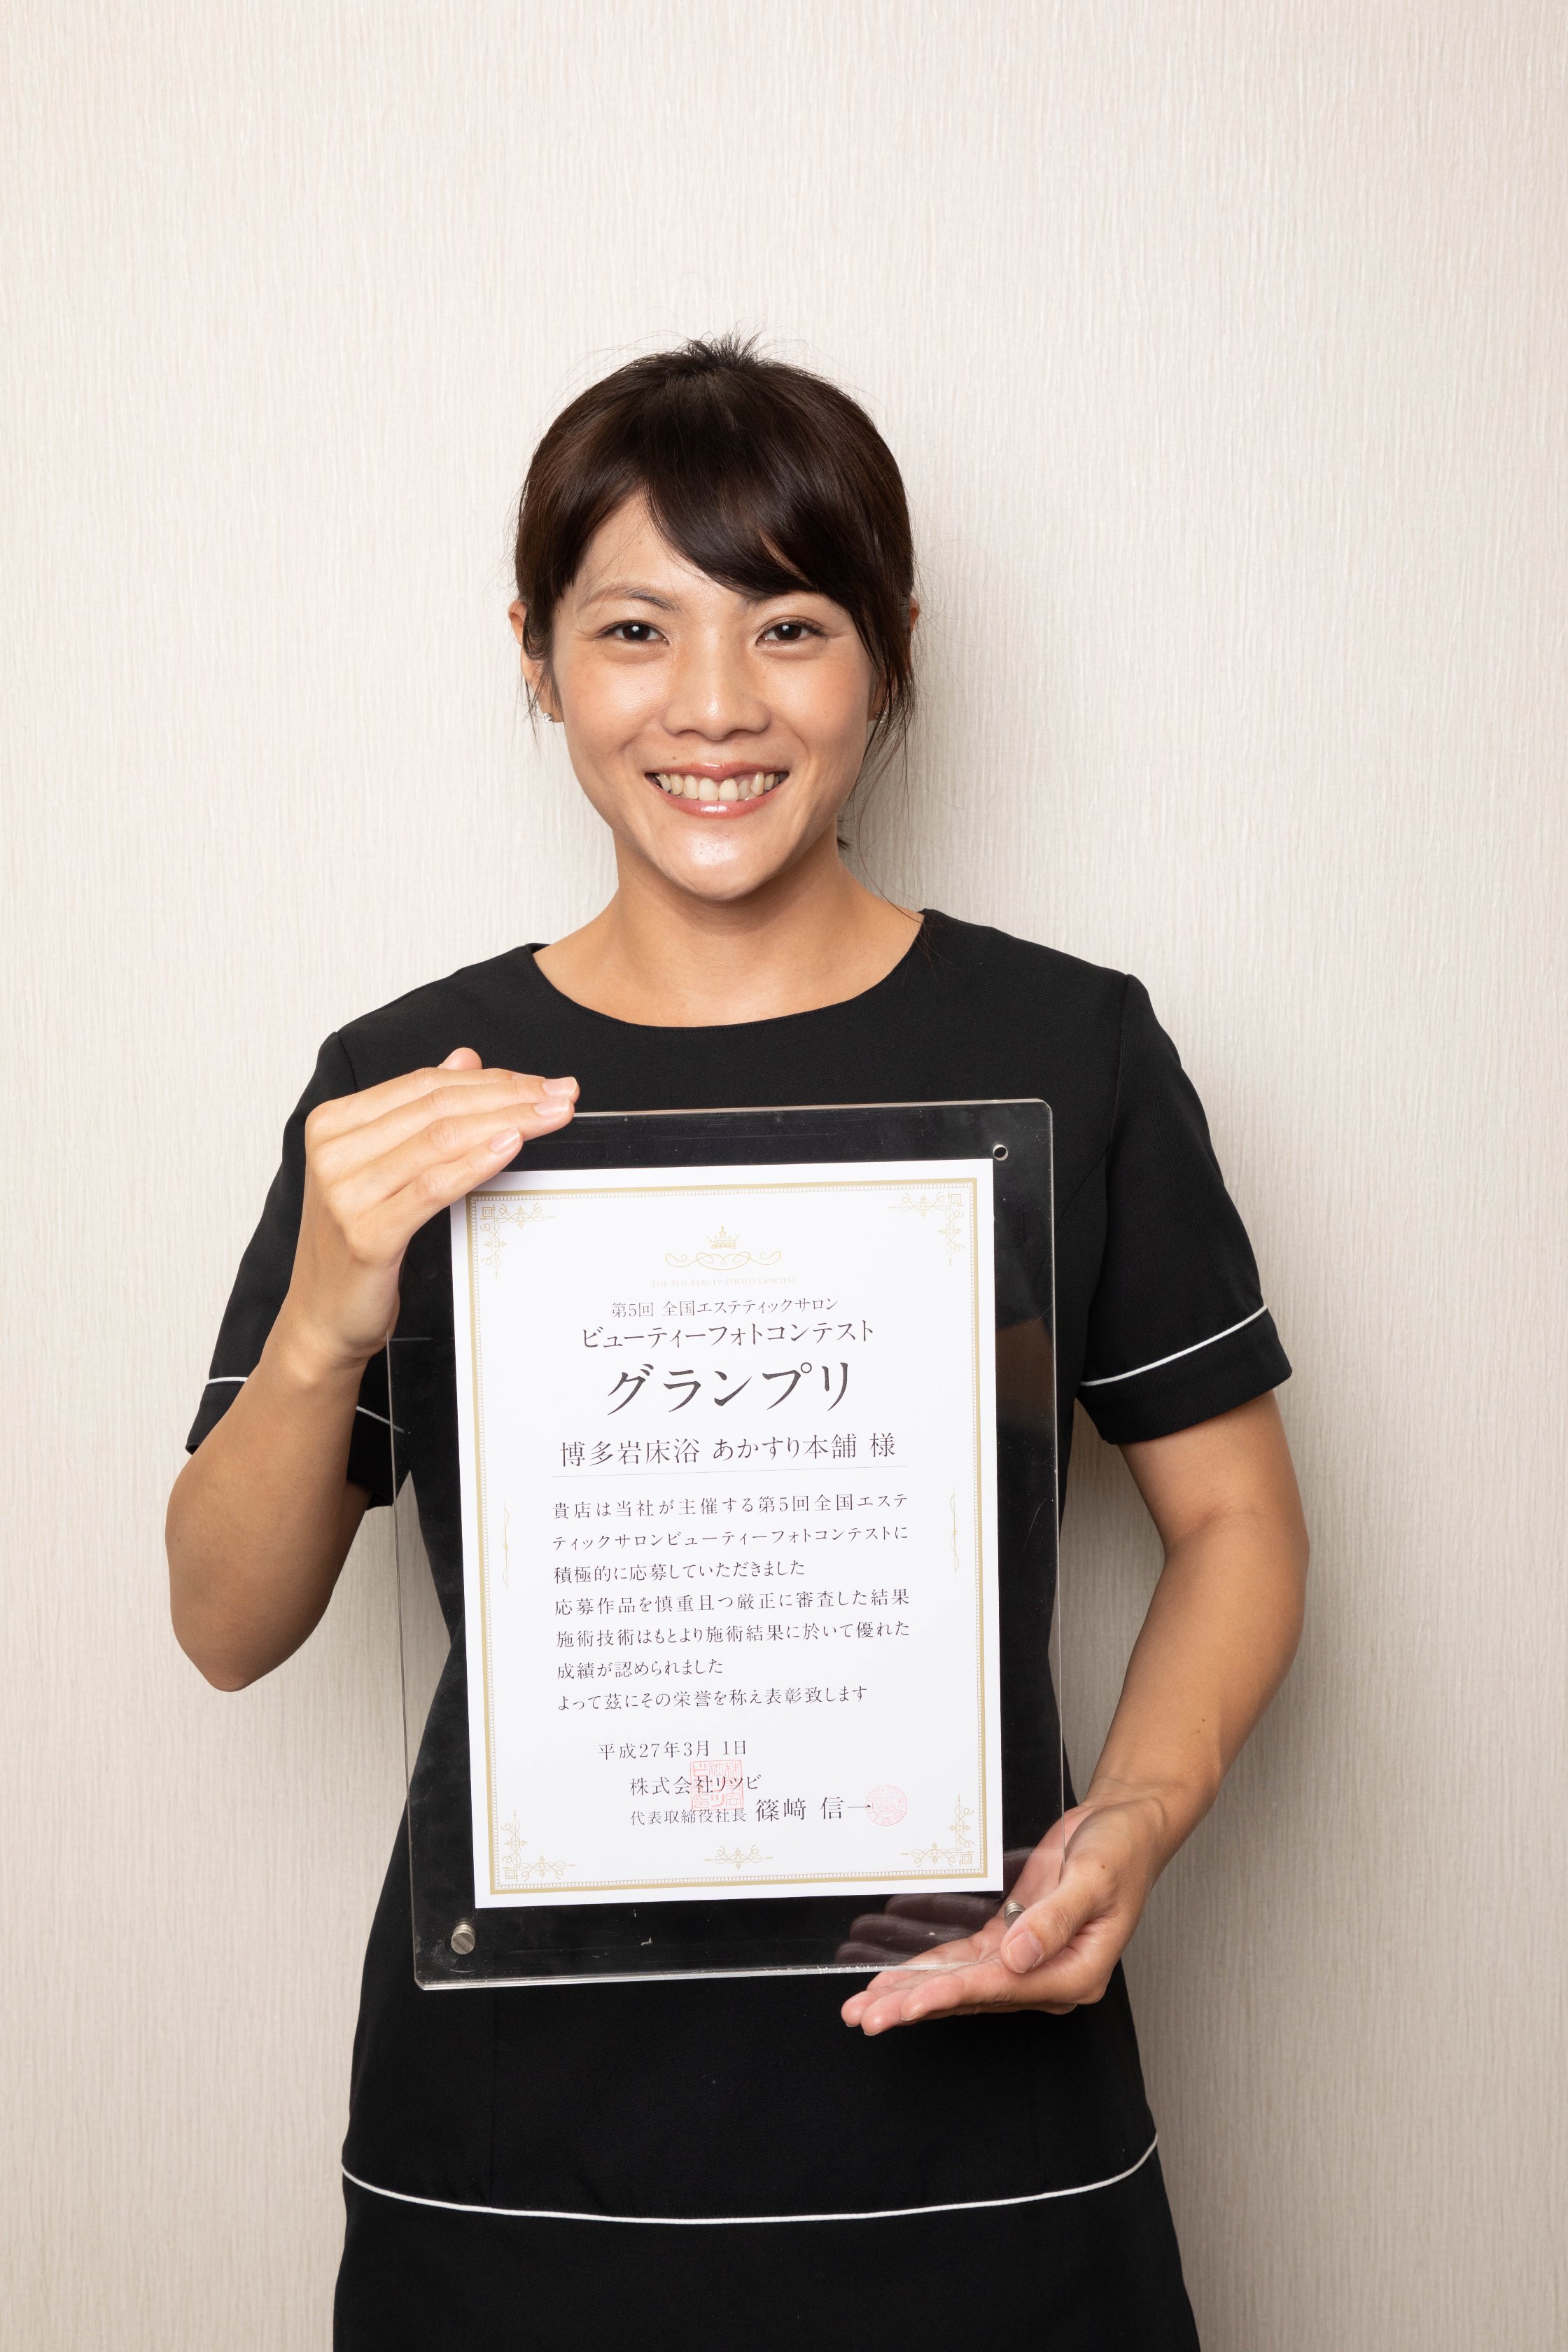 THE 5TH BEAUTY PHOTO CONTEST
第5回 全国エステティックサロン
ビューティーフォトコンテスト
グランプリ
博多岩床浴 あかすり本舗 様
貴店は当社が主催する第5回全国エステ
ティックサロンビューティーフォトコンテストに
積極的に応募していただきました
応募作品を慎重且つ厳正に審査した結果
施術技術はもとより施術結果に於いて優れた
成績が認められました
よって茲にその栄誉を称え表彰致します
平成27年3月 1日
株式会社リツビ
代表取締役社長 篠﨑 信一